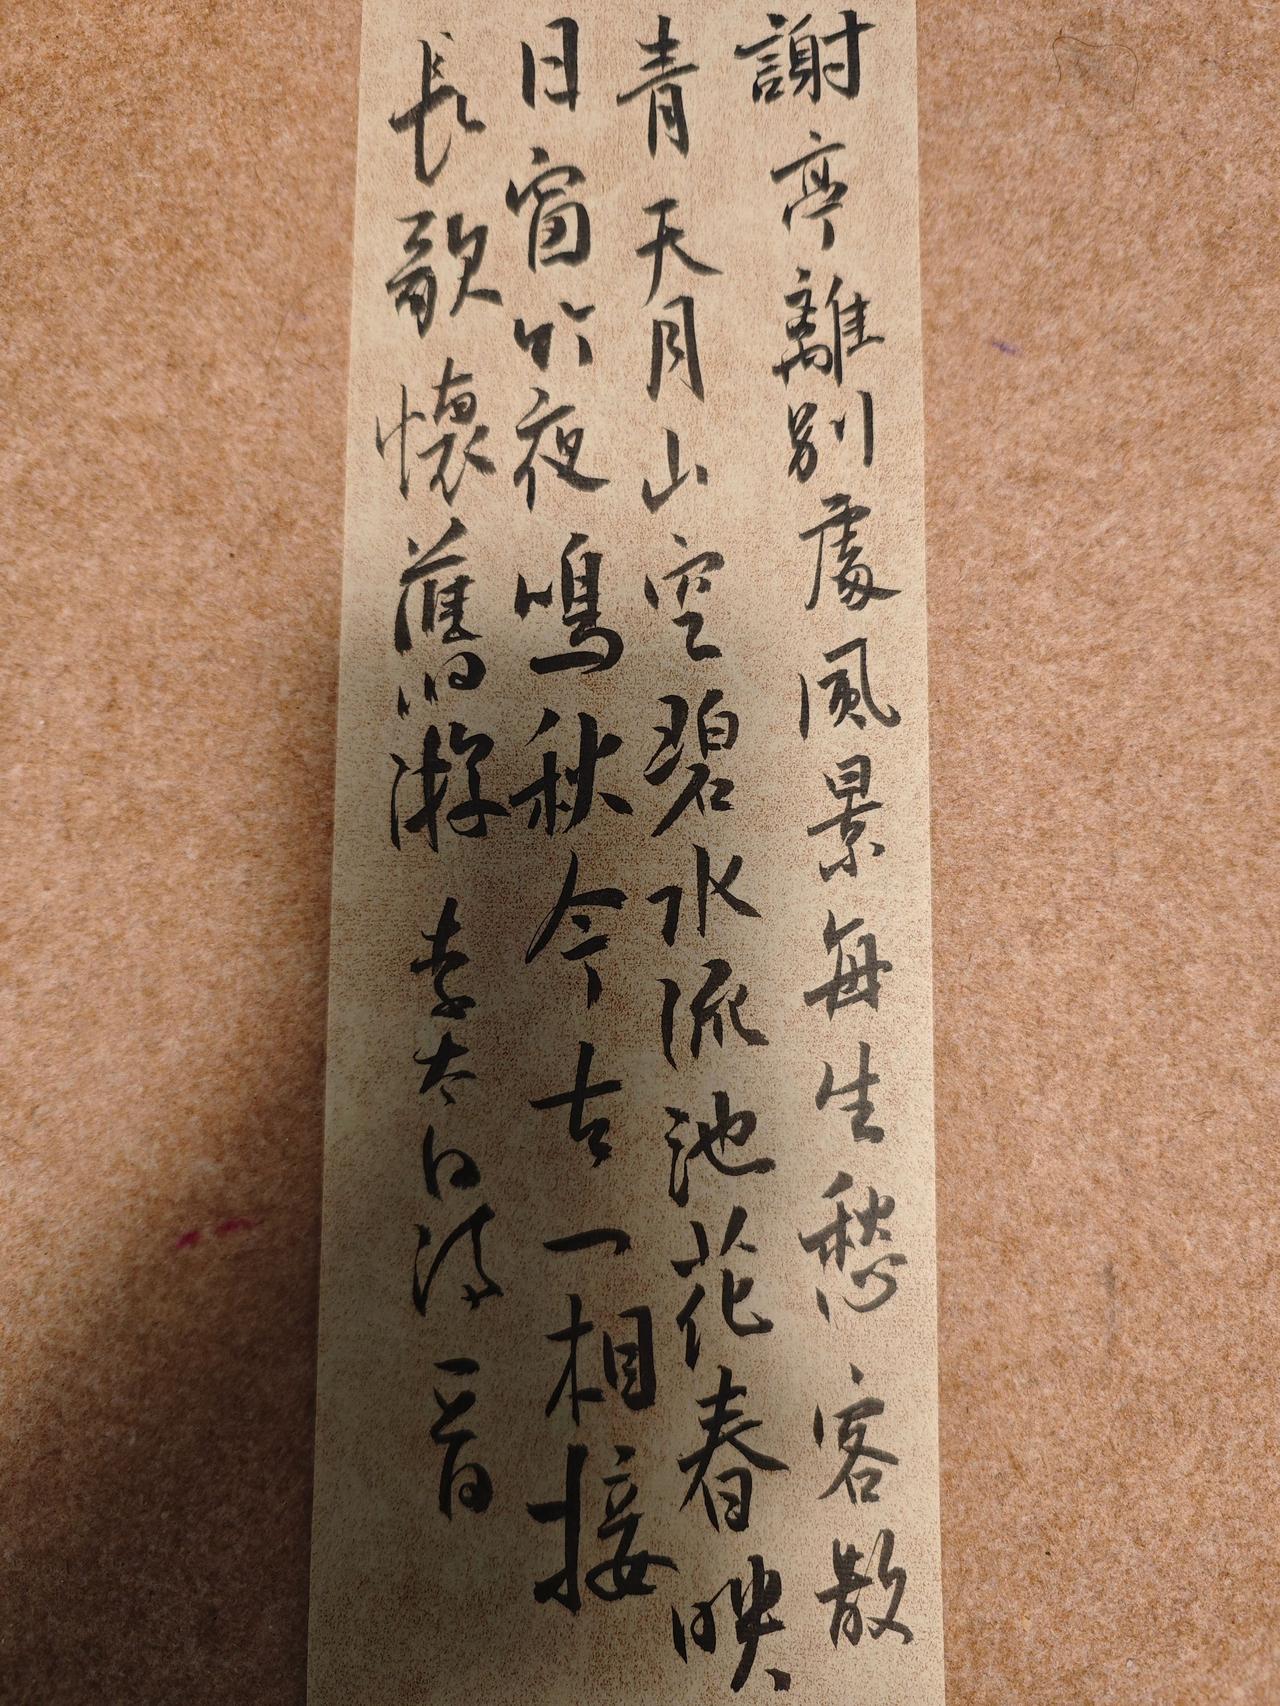 謝亭離別處風景每生愁客散
青天月山空碧水流池花春映
日窗竹夜鳴秋今古一相接
長歌懷舊游李太白詩